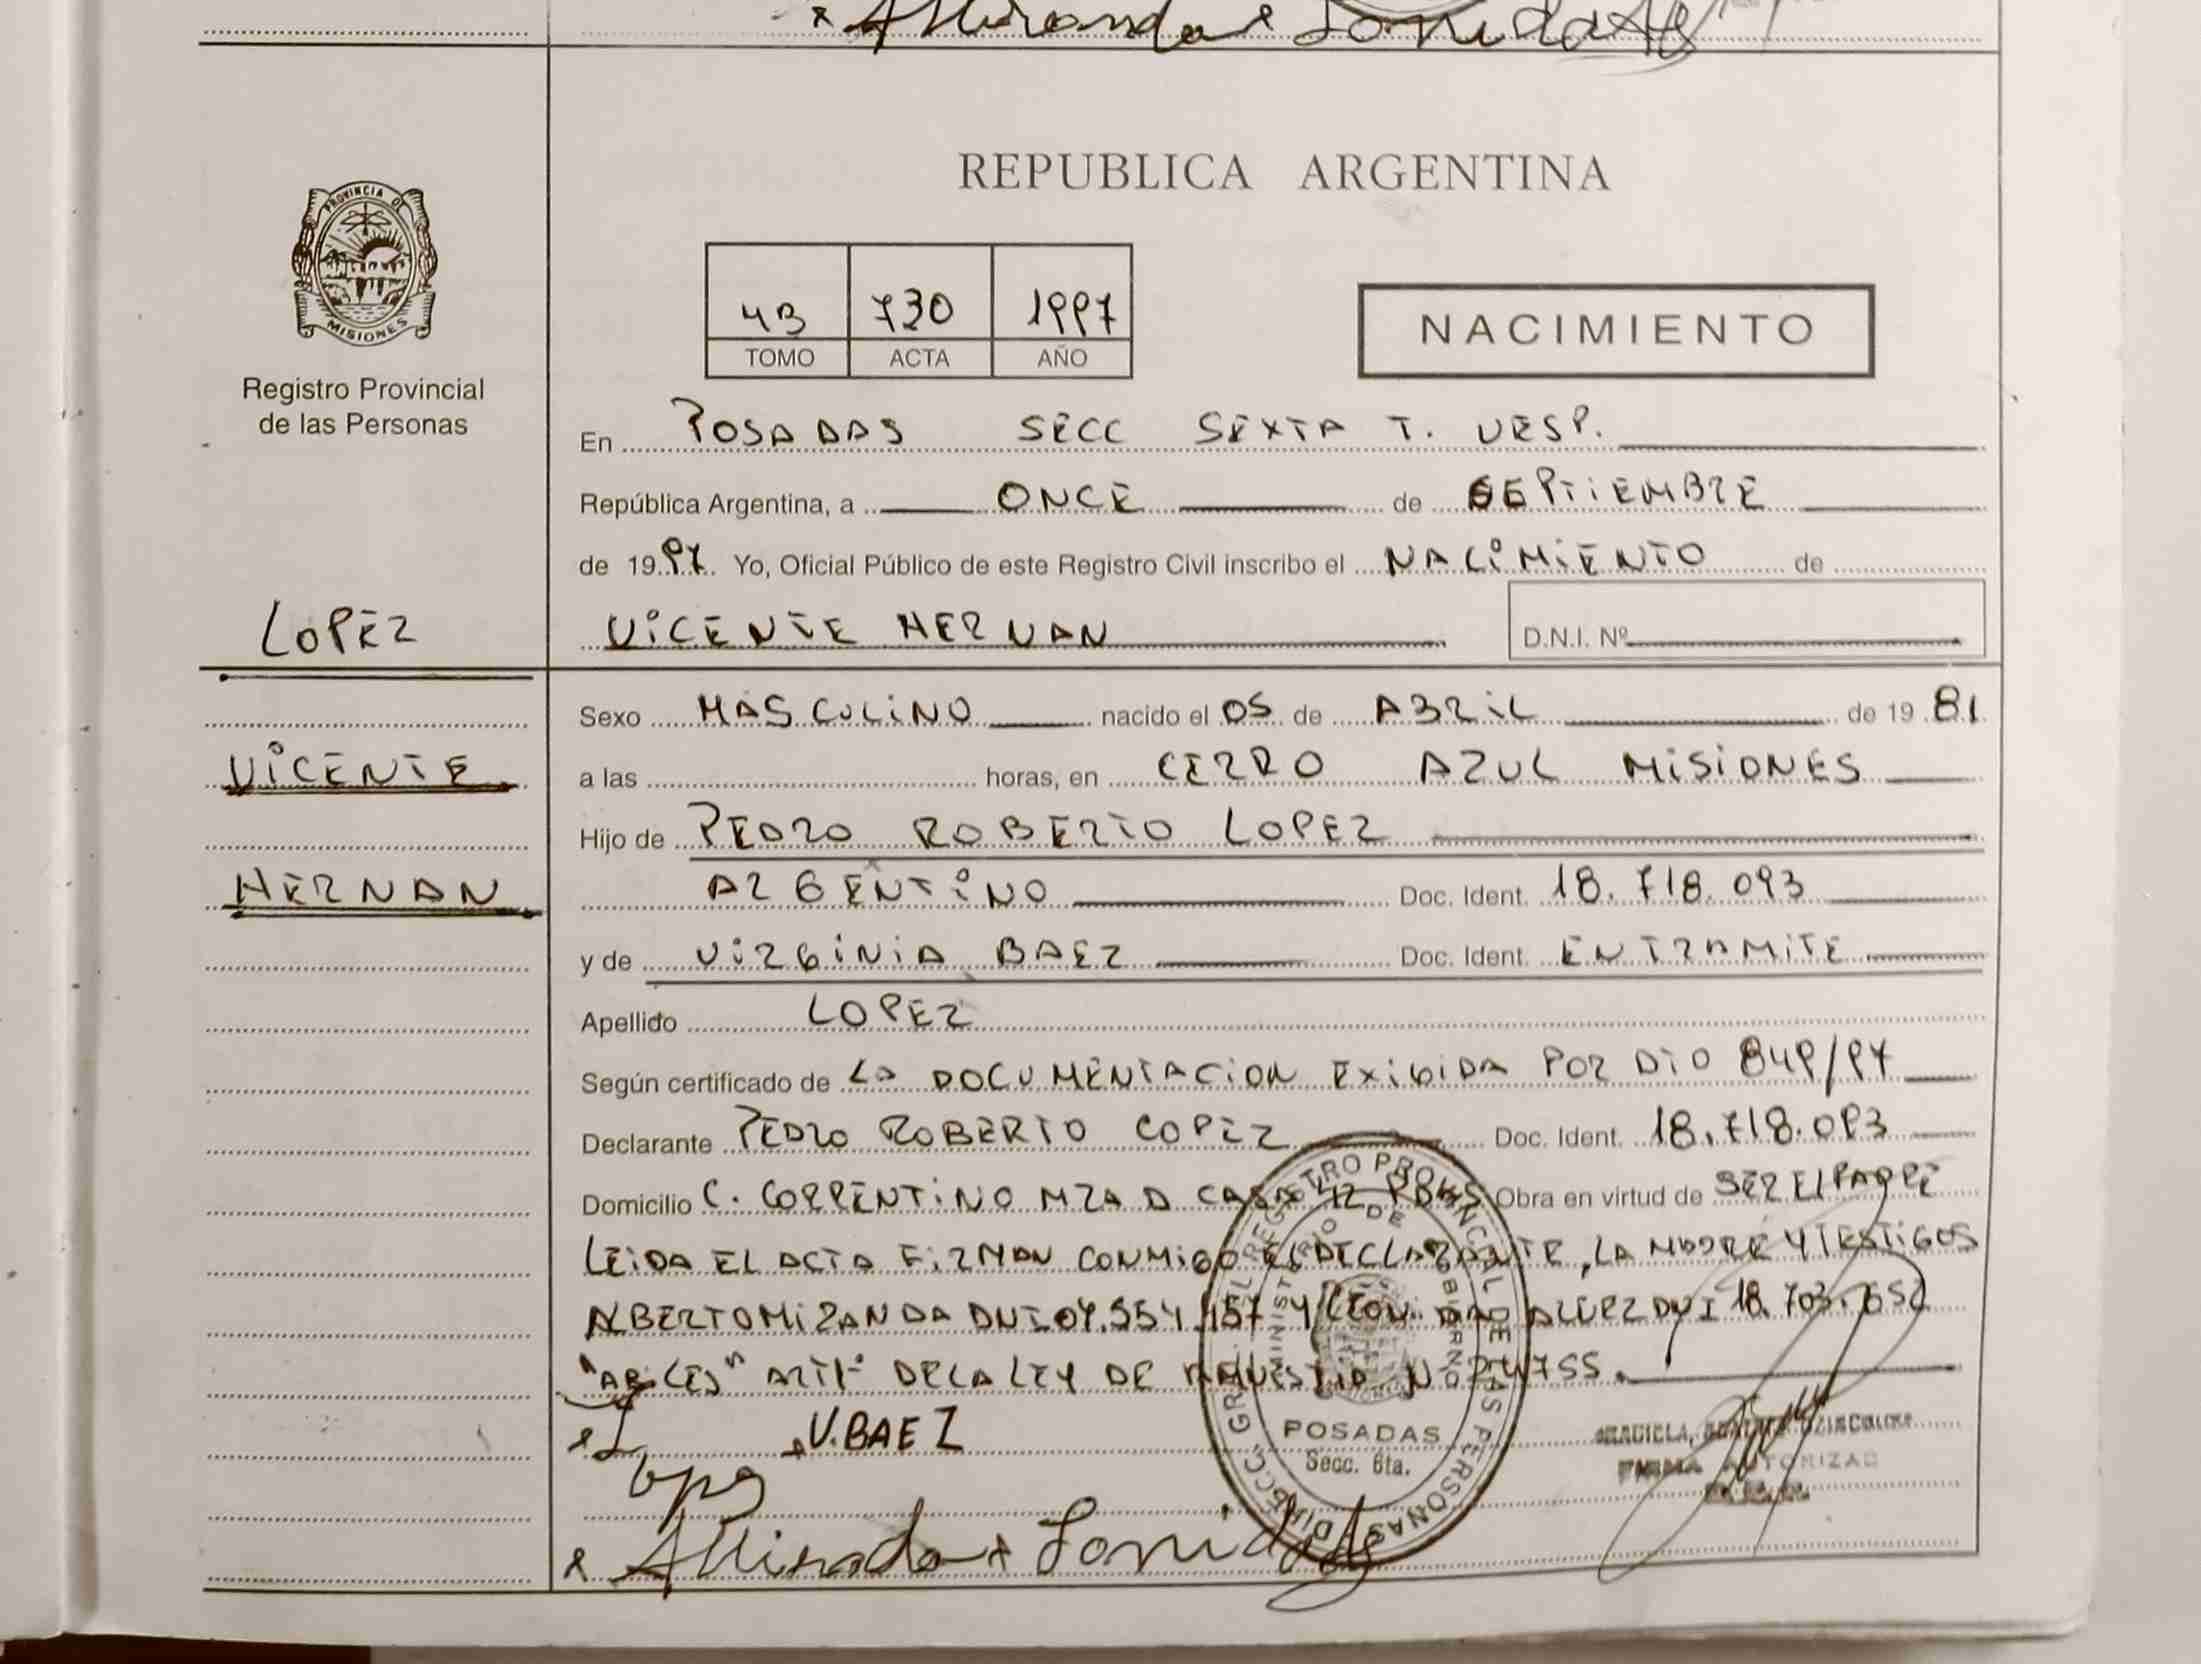 PROVINCIA DE
MISIONES
Registro Provincial
de las Personas
LOPEZ
VICENTE
HERNAN
REPUBLICA ARGENTINA
4B 730 1997
TOMO ACTA AÑO
NACIMIENTO
En POSADAS SECC SEXTA T. VESP.
República Argentina, a ONCE de SEPTIEMBRE
de 1997 Yo, Oficial Público de este Registro Civil inscribo el NACIMIENTO de
VICENTE HERNAN D.N.I. Nº
Sexo MASCULINO nacido el 05 de ABRIL de 1981
a las horas, en CERRO AZUL MISIONES
Hijo de PEDRO ROBERTO LOPEZ
ARGENTINO Doc. Ident. 18.718.093
y de VIRGINIA BAEZ Doc. Ident. EN TRAMITE
Apellido LOPEZ
Según certificado de LA DOCUMENTACION EXIGIDA POR DTO 849/97
Declarante PEDRO ROBERTO LOPEZ Doc. Ident. 18.718.093
Domicilio C. CORRENTINO MZA D CASA 42 PDAS Obra en virtud de SER EL PADRE
LEIDA EL ACTA FIRMAN CONMIGO EL DECLARANTE, LA MADRE Y TESTIGOS
ALBERTO MIRANDA DNI 07.554.157 Y DNI 18.703.652
DE LA LEY DE
V. BAEZ
A Miranda
DIRECC. GRAL REGISTRO PROVINCIAL DE LAS PERSONAS
MINISTERIO DE GOBIERNO
POSADAS
Secc. 6ta.